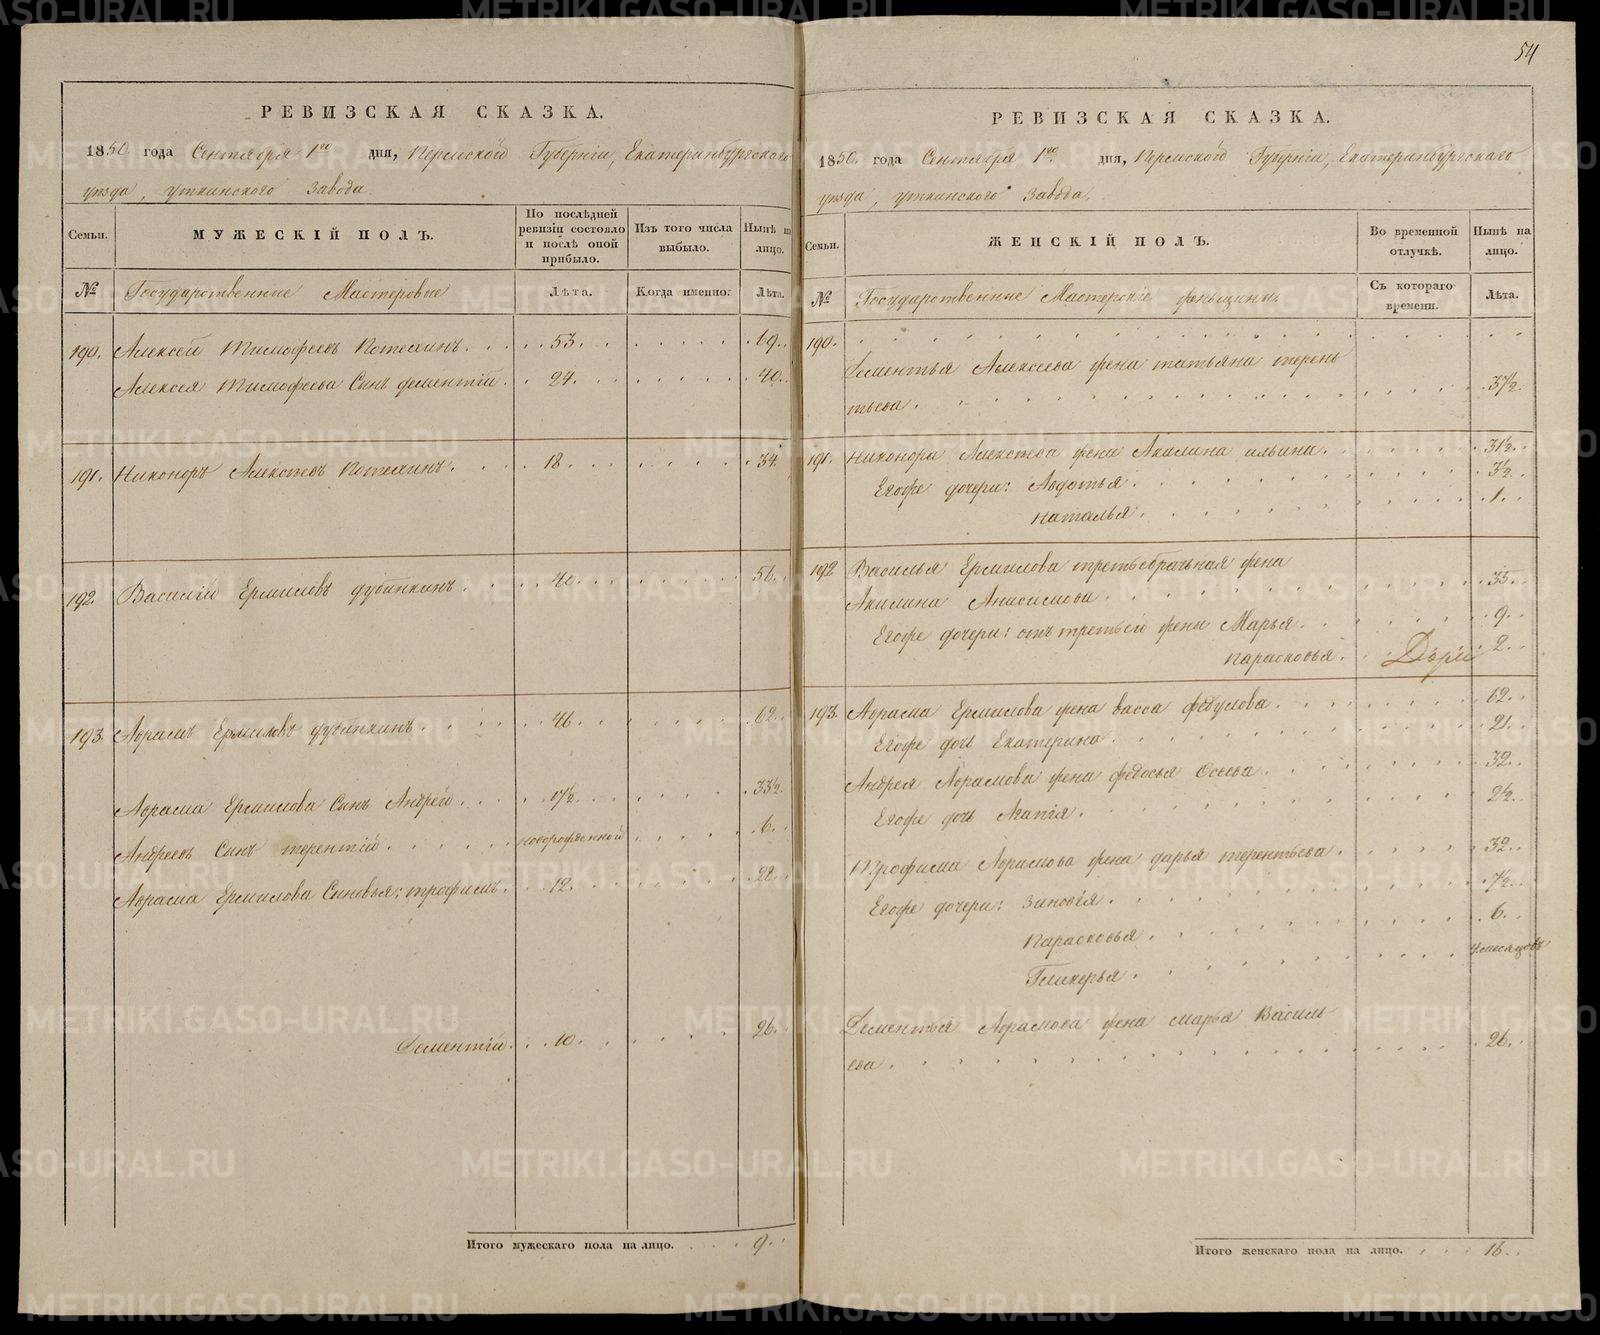 РЕВИЗСКАЯ СКАЗКА.
1850 года Сентября 1го дня, Пермской Губерніи, Екатеринбургскаго
уезда, Уткинского Завода
Семьи.
МУЖЕСКІЙ ПОЛЪ.
По послѣдней ревизіи состояло и послѣ оной прибыло.
Изъ того числа выбыло.
Нынѣ на лицо.
№
Государственные Мастеровые
Лѣта.
Когда именно.
Лѣта.
190. Алексей Тимофеевъ Потехинъ. 53. 69.
Алексея Тимофеева Сынъ Дементій. 24. 40.
191. Никоноръ Алексѣевъ Потехинъ. 18. 34.
192. Василій Ермиловъ Дубинкинъ. 40. 56.
193 Абрамъ Ермиловъ Дубинкинъ. 46. 62.
Абрама Ермилова Сынъ Андрей. 17½. 33½.
Андреевъ Сынъ Терентій. новорожденной 6.
Абрама Ермилова Сыновья: Трофимъ. 12. 28.
Дементій. 10. 26.
Итого мужескаго пола на лицо. 9.
54
РЕВИЗСКАЯ СКАЗКА.
1850. года Сентября 1го. дня, Пермской Губерніи, Екатеринбургскаго
уезда, Уткинского Завода.
Семьи.
ЖЕНСКІЙ ПОЛЪ.
Во временной отлучкѣ.
Нынѣ на лицо.
№
Государственные Мастерскіе женщины
Съ котораго времени.
Лѣта.
190.
Дементья Алексеева жена Татьяна Терень
тьева. 37½.
191. Никонора Алексѣева жена Акилина Ильина. 31½.
Егоже дочери: Авдотья. 3½.
Наталья. 1.
192 Василья Ермилова третьебрачная жена
Акилина Анисимова. 35.
Егоже дочери: отъ третьей жены Марья. 9.
Парасковья. 2.
193. Абрама Ермилова жена Васса Федулова. 62.
Егоже дочь Екатерина. 21.
Андрея Абрамова жена Федосья Осиева. 32.
Егоже дочь Агапія. 2½.
Трофима Абрамова жена Дарья Терентьева. 32.
Егоже дочери: Зиновія. 7½.
Парасковья. 6.
Гликерья. месяцовъ
Дементья Абрамова жена Марья Василь
ева. 26.
Итого женскаго пола на лицо. 16.
METRIKI.GASO-URAL.RU